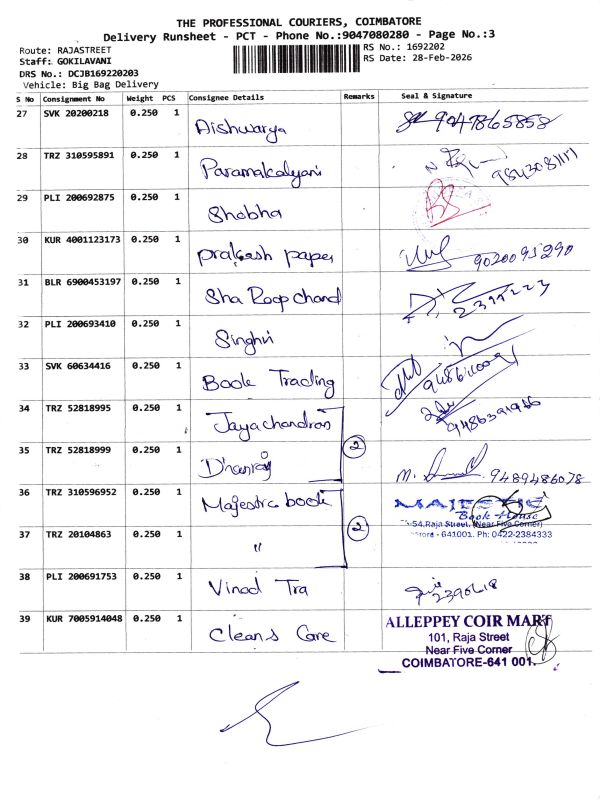 THE PROFESSIONAL COURIERS, COIMBATORE
Delivery Runsheet - PCT - Phone No.:9047080280 - Page No.:3
Route: RAJASTREET
RS No.: 1692202
Staff: GOKILAVANI
RS Date: 28-Feb-2026
DRS No.: DCJB169220203
Vehicle: Big Bag Delivery
S No Consignment No Weight PCS Consignee Details Remarks Seal & Signature
27 SVK 20200218 0.250 1 Aishwarya 9047865858
28 TRZ 310595891 0.250 1 Paramakalyani
29 PLI 200692875 0.250 1 Shobha
30 KUR 4001123173 0.250 1 prakash paper 9020095290
31 BLR 6900453197 0.250 1 Sha Roop chand
32 PLI 200693410 0.250 1 Singhvi
33 SVK 60634416 0.250 1 Book Trading
34 TRZ 52818995 0.250 1 Jayachandran
35 TRZ 52818999 0.250 1 Dhanraj 2 M. 9489486078
36 TRZ 310596952 0.250 1 Majestic book MAJESTIC
Book-House
54, Raja Street, (Near Five Corner)
641001. Ph: 0422-2384333
37 TRZ 20104863 0.250 1 " 2
38 PLI 200691753 0.250 1 Vinod Tra
39 KUR 7005914048 0.250 1 Cleans Care
ALLEPPEY COIR MART
101, Raja Street
Near Five Corner
COIMBATORE-641 001.